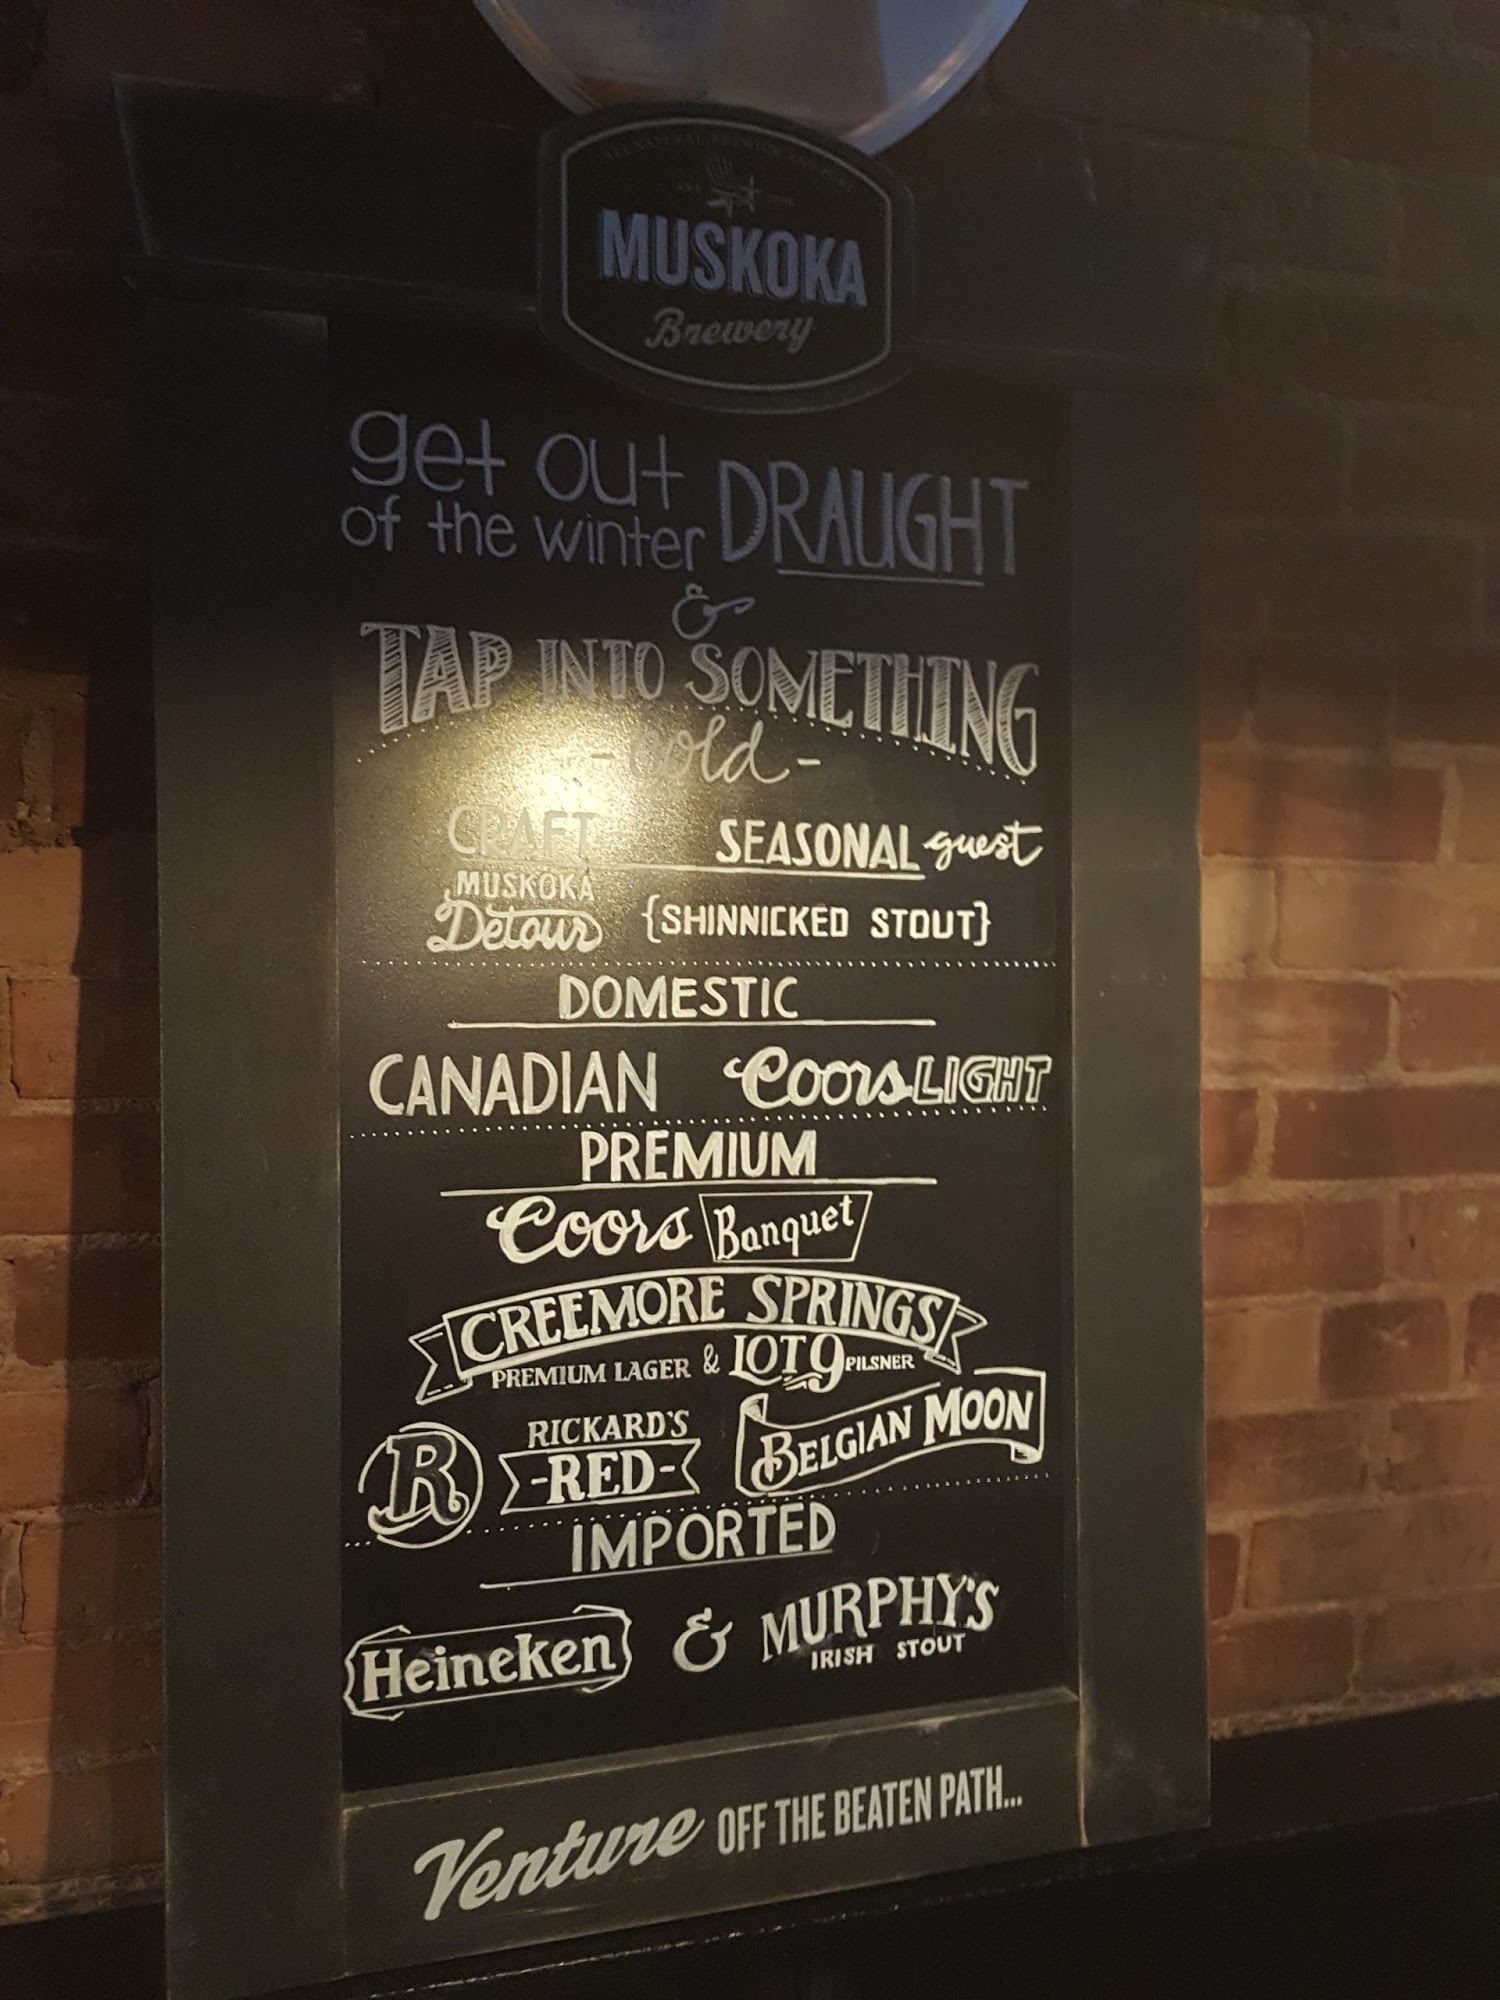 MUSKOKA
Brewery
get out
of the winter DRAUGHT
&
TAP INTO SOMETHING
- cold -
CRAFT SEASONAL guest
MUSKOKA
Detour {SHINNICKED STOUT}
DOMESTIC
CANADIAN Coors LIGHT
PREMIUM
Coors Banquet
CREEMORE SPRINGS
PREMIUM LAGER & LOT 9 PILSNER
R RICKARD'S
-RED- BELGIAN MOON
IMPORTED
Heineken & MURPHY'S
IRISH STOUT
Venture OFF THE BEATEN PATH...